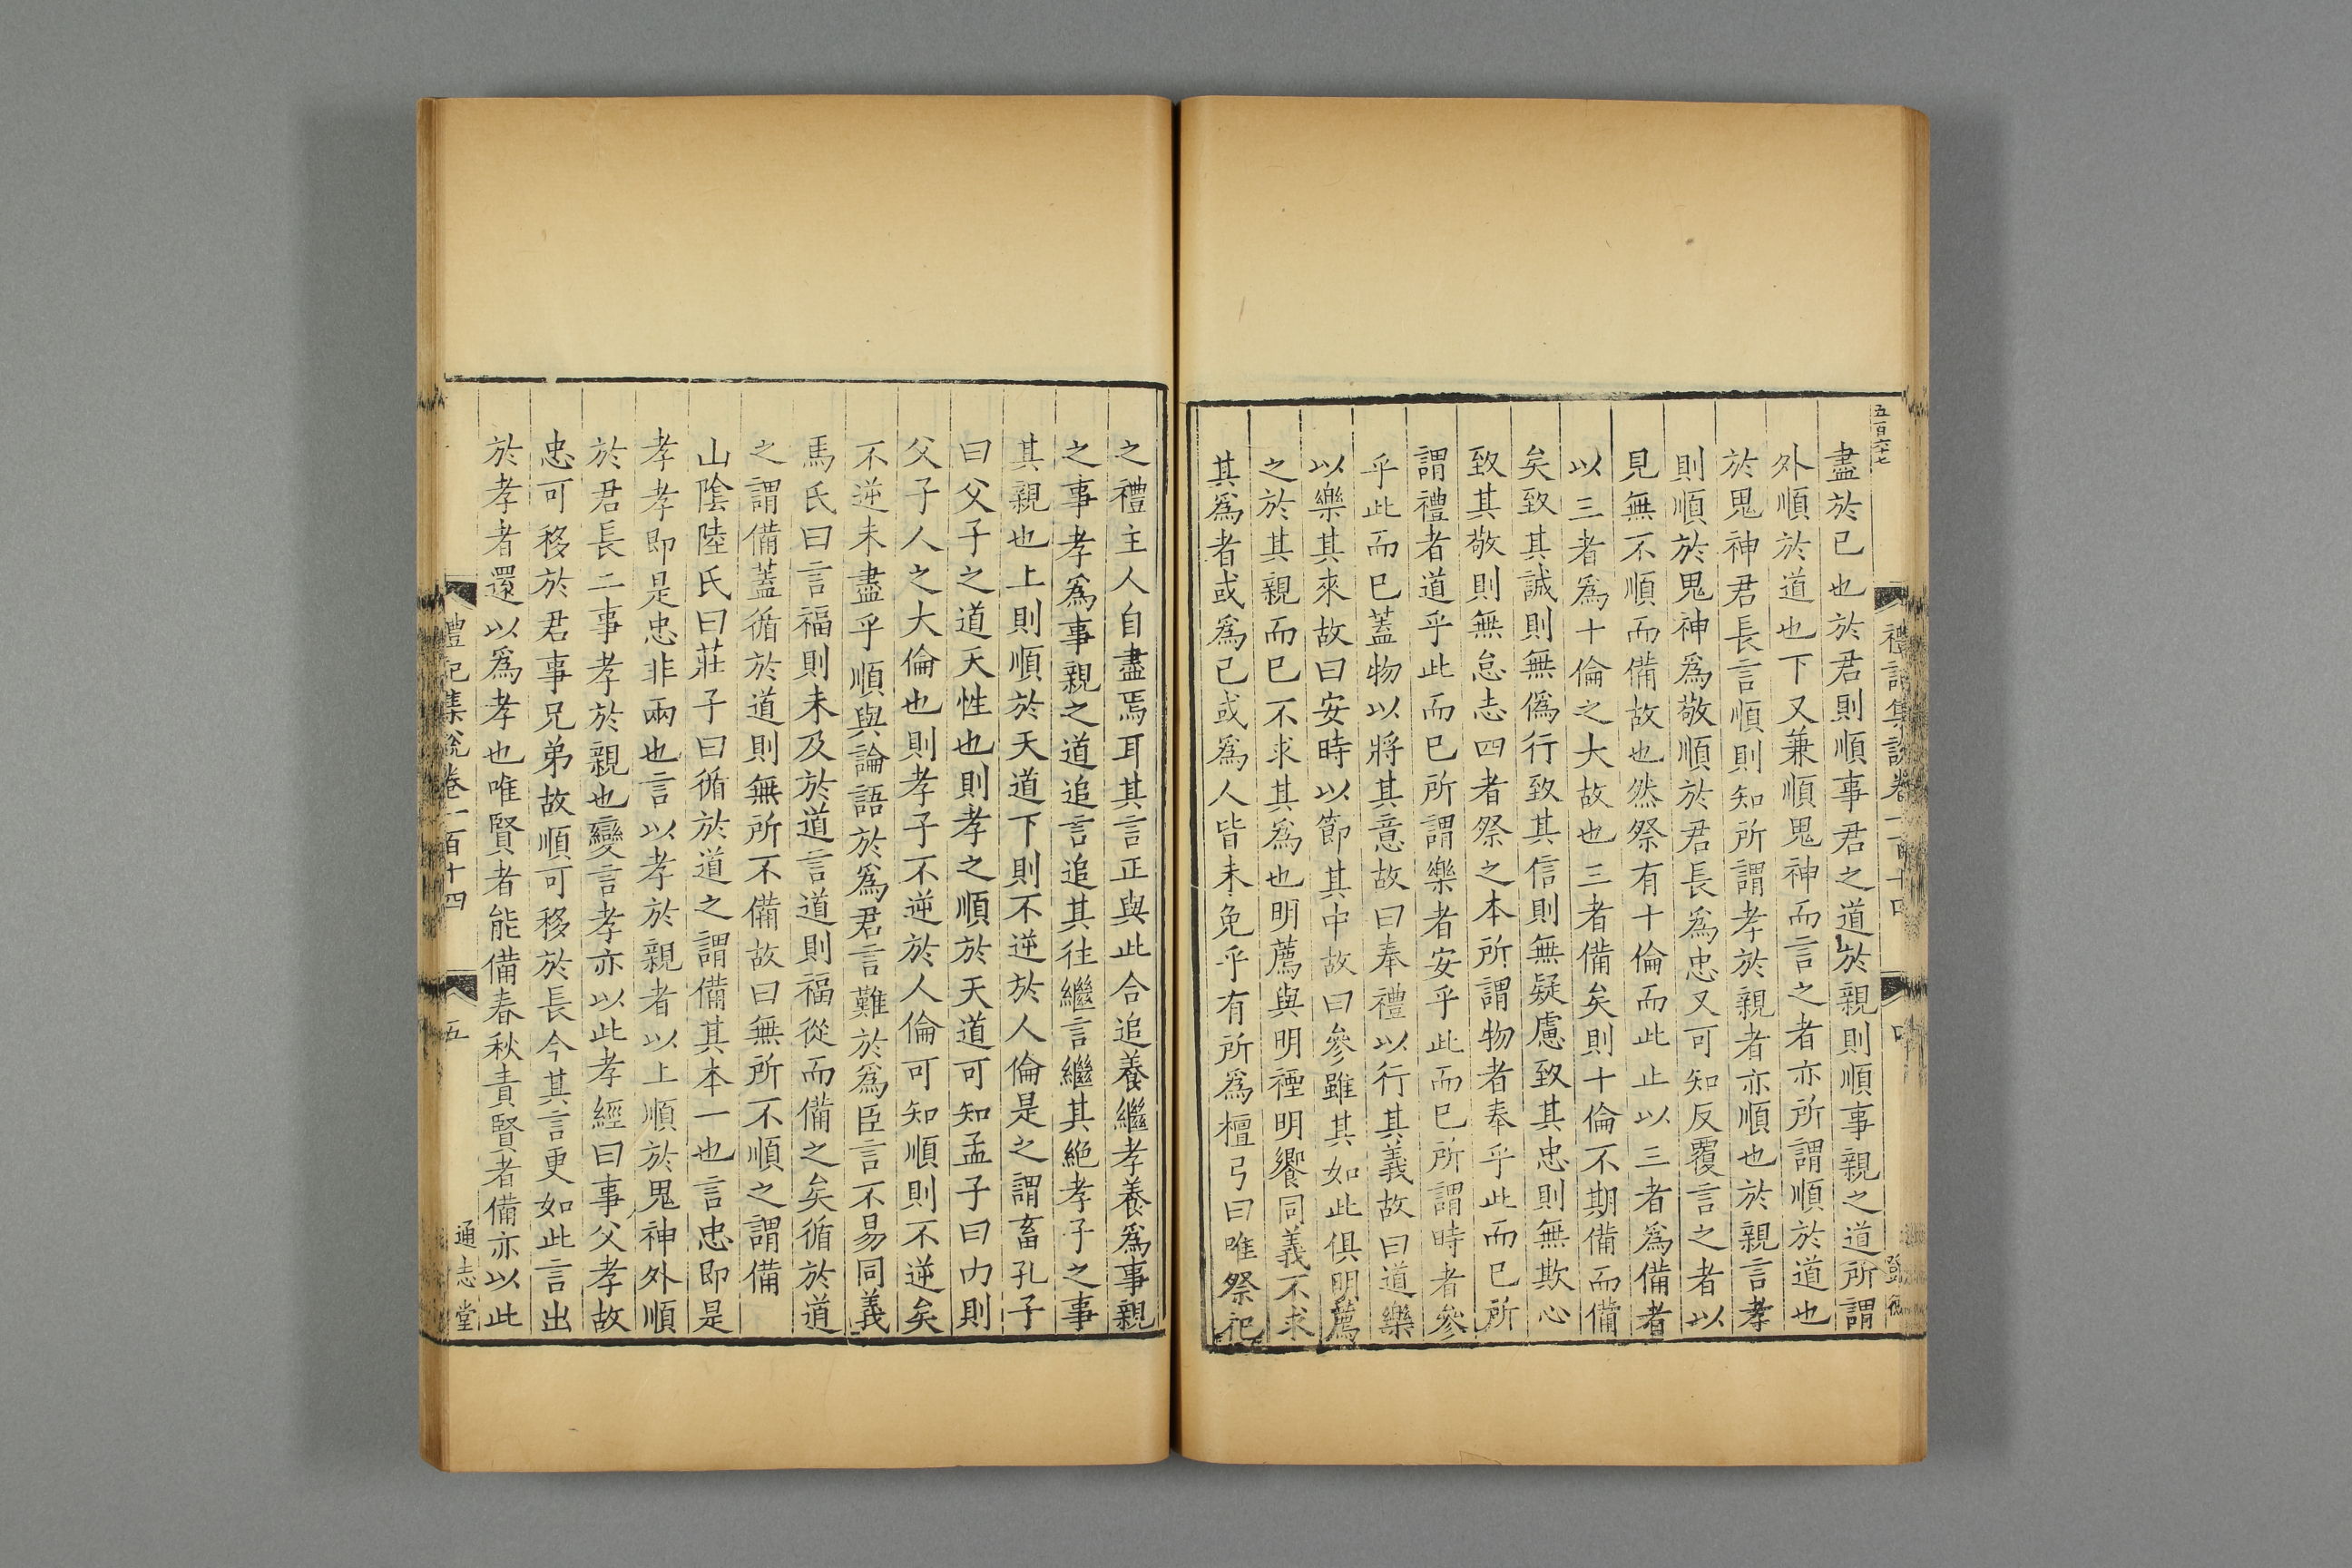 五百六十七
禮記集說卷一百十四
四
盡於已也於君則順事君之道於親則順事親之道所謂
外順於道也下又兼順鬼神而言之者亦所謂順於道也
於鬼神君長言順則知所謂孝於親者亦順也於親言孝
則順於鬼神為敬順於君長為忠又可知反覆言之者以
見無不順而備故也然祭有十倫而此止以三者為備者
以三者為十倫之大故也三者備矣則十倫不期備而備
矣致其誠則無偽行致其信則無疑慮致其忠則無欺心
致其敬則無怠志四者祭之本所謂物者奉乎此而已所
謂禮者道乎此而已所謂樂者安乎此而已所謂時者參
乎此而已蓋物以將其意故曰奉禮以行其義故曰道樂
以樂其來故曰安時以節其中故曰參雖其如此俱明薦
之於其親而已不求其為也明薦與明禋明饗同義不求
其為者或為已或為人皆未免乎有所為檀弓曰唯祭祀
之禮主人自盡焉耳其言正與此合追養繼孝養為事親
之事孝為事親之道追言追其往繼言繼其絕孝子之事
其親也上則順於天道下則不逆於人倫是之謂畜孔子
曰父子之道天性也則孝之順於天道可知孟子曰內則
父子人之大倫也則孝子不逆於人倫可知順則不逆矣
不逆未盡乎順與論語於為君言難於為臣言不易同義
馬氏曰言福則未及於道言道則福從而備之矣循於道
之謂備蓋循於道則無所不備故曰無所不順之謂備
山陰陸氏曰莊子曰循於道之謂備其本一也言忠即是
孝孝即是忠非兩也言以孝於親者以上順於鬼神外順
於君長二事孝於親也變言孝亦以此孝經曰事父孝故
忠可移於君事兄弟故順可移於長今其言更如此言出
於孝者還以為孝也唯賢者能備春秋責賢者備亦以此
禮記集說卷一百十四
五
通志堂